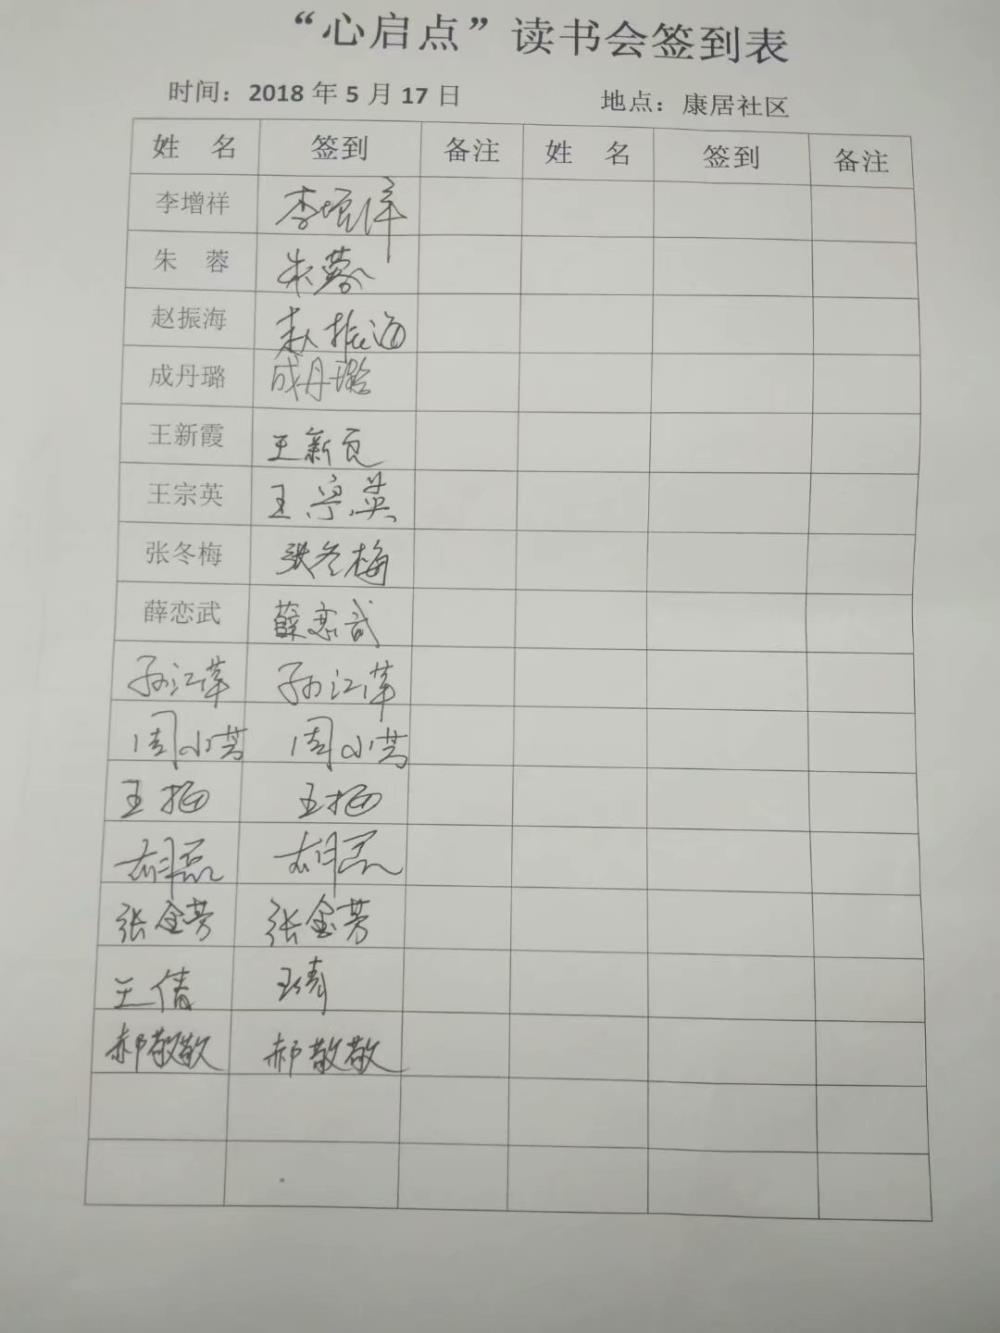 “心启点”读书会签到表
时间：2018 年 5 月 17 日 地点：康居社区
姓 名 签到 备注 姓 名 签到 备注
李增祥 李增祥
朱 蓉 朱蓉
赵振海 赵振海
成丹璐 成丹璐
王新霞 王新
王宗英 王宗英
张冬梅 张冬梅
薛恋武 薛恋武
孙江萍 孙江萍
周小芳 周小芳
王 王
胡磊 胡磊
张金芳 张金芳
王倩 王倩
郝敬敬 郝敬敬